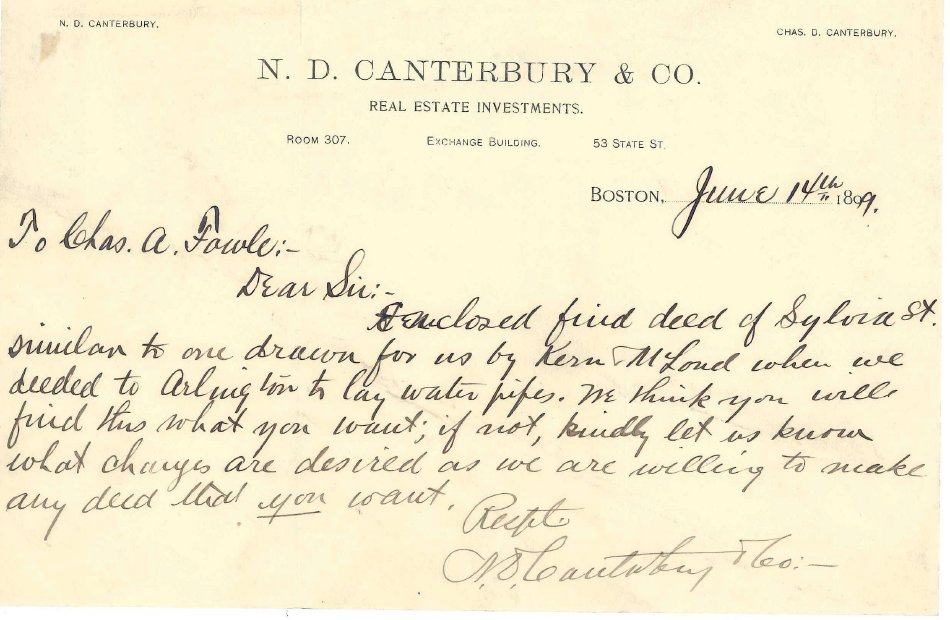 N. D. CANTERBURY.
CHAS. D. CANTERBURY.
N. D. CANTERBURY & CO.
REAL ESTATE INVESTMENTS.
ROOM 307. EXCHANGE BUILDING. 53 STATE ST.
BOSTON, June 14th 1899.
To Chas. A. Fowle:-
Dear Sir:-
Enclosed find deed of Sylvia St.
similar to one drawn for us by when we
deeded to Arlington to lay water pipes. We think you will
find this what you want; if not, kindly let us know
what changes are desired as we are willing to make
any deed that you want.
Respt
N. D. Canterbury & Co:-